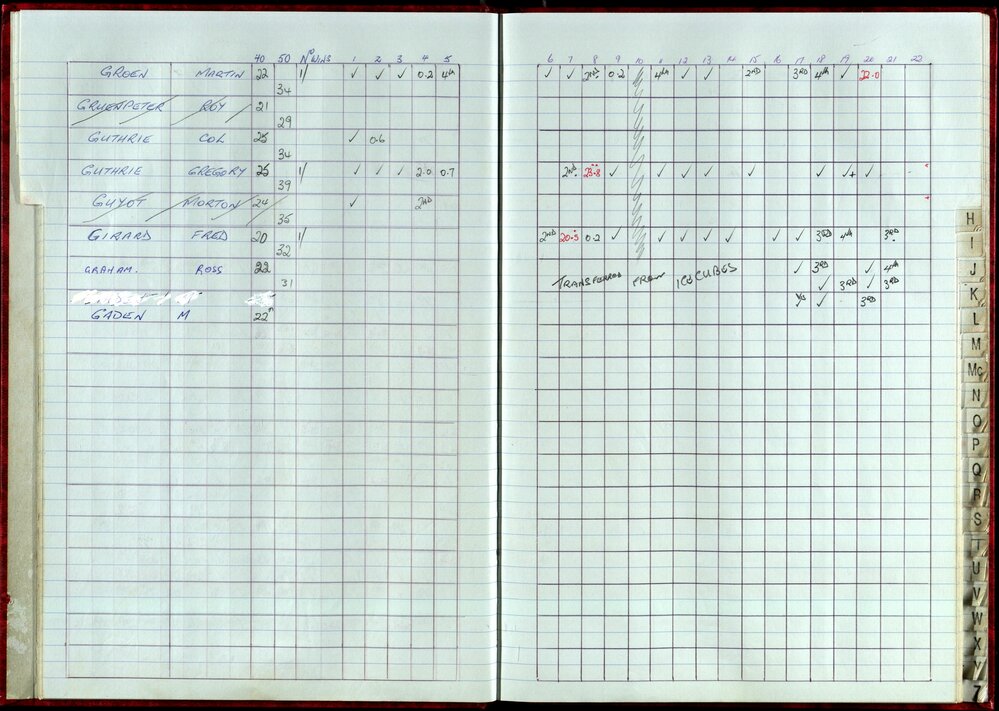 40 50 Nº WINS 1 2 3 4 5 6 7 8 9 10 11 12 13 14 15 16 17 18 19 20 21 22
GROEN MARTIN 22 1/ ✓ ✓ ✓ 0.2 4th ✓ ✓ 2ND 0.2 4th ✓ ✓ 2ND 3RD 4th ✓ 22.0
34
GRUENPETER ROY 21
29
GUTHRIE COL 25 ✓ 0.6
34
GUTHRIE GREGORY 25 1/ ✓ ✓ ✓ 2.0 0.7 2ND 23.8 ✓ ✓ ✓ ✓ ✓ ✓ ✓+ ✓
39
GUYOT MORTON 24 ✓ 2ND
35
GIRARD FRED 20 1/ 2ND 20.5 0.2 ✓ ✓ ✓ ✓ ✓ ✓ ✓ 3RD 4th 3RD
32
GRAHAM. ROSS 22 TRANSFERRED FROM ICE CUBES ✓ 3RD ✓ 4th
31 ✓ 3RD ✓ 3RD
✓ 3RD
GADEN M 22
H
I
J
K
L
M
Mc
N
O
P
Q
R
S
T
U
V
W
X
Y
Z